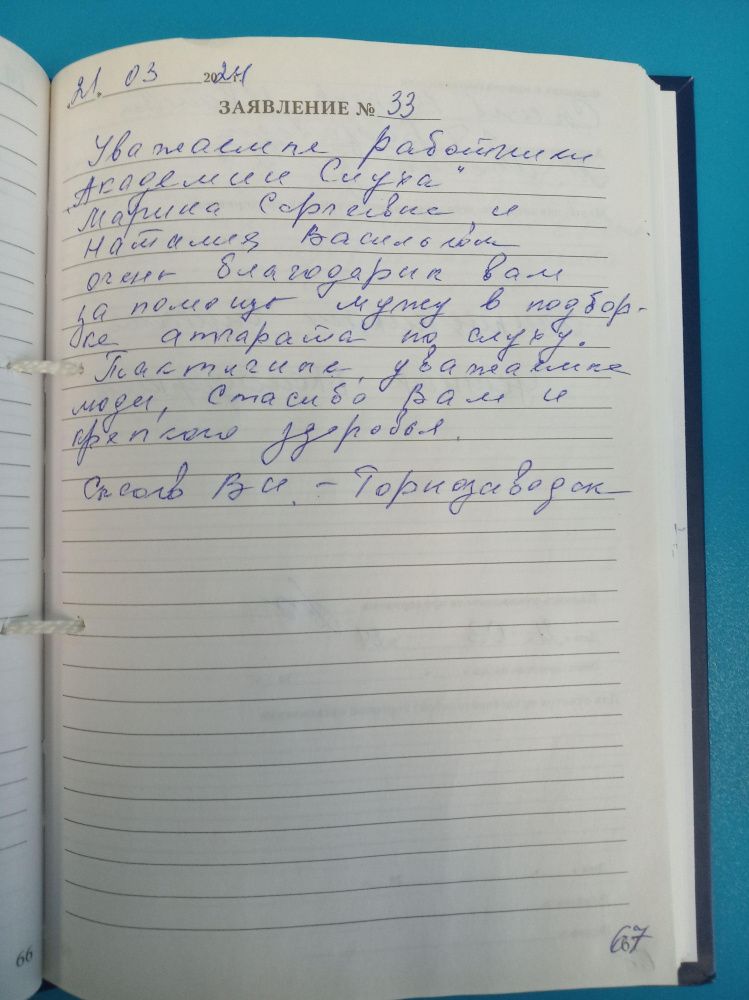 21. 03 2024
ЗАЯВЛЕНИЕ № 33
Уважаемые работники
"Академии Слуха"
Марина Сергеевна и
Наталия Васильевна
очень благодарна вам
за помощь мужу в подбор-
ке аппарата по слуху.
Тактичные, уважаемые
люди, Спасибо Вам и
крепкого здоровья.
В И. - Горнозаводск
66
67